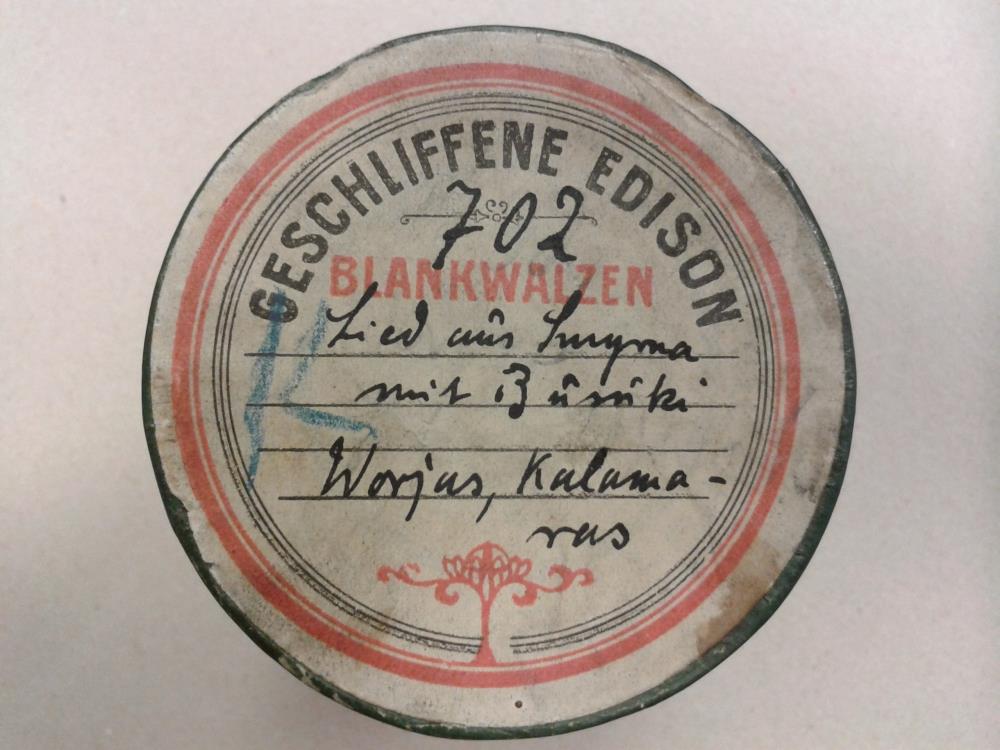 GESCHLIFFENE EDISON
702
BLANKWALZEN
K
Lied aus Smyrna
mit Busuki
Worjas, Kalama-
ras